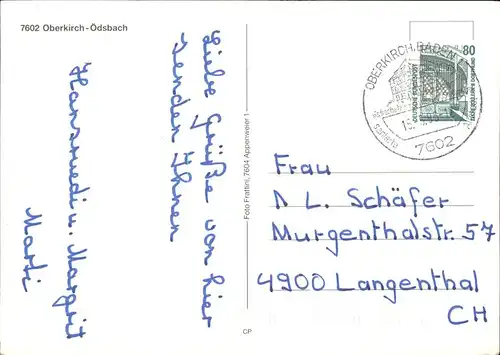 7602 Oberkirch-Ödsbach
Liebe Grüße von hier
senden Ihnen
Hansruedi u. Margrit
Marti
Foto Frattini, 7604 Appenweier 1
CP
80
DEUTSCHE BUNDESPOST
OBERKIRCH, BADEN
7602
Frau
L. Schäfer
Murgenthalstr. 57
4900 Langenthal
CH